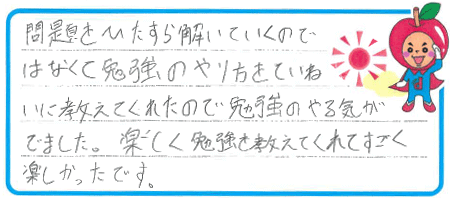 問題をひたすら解いていくので
はなくて勉強のやり方をていね
いに教えてくれたので勉強のやる気が
でました。楽しく勉強を教えてくれてすごく
楽しかったです。